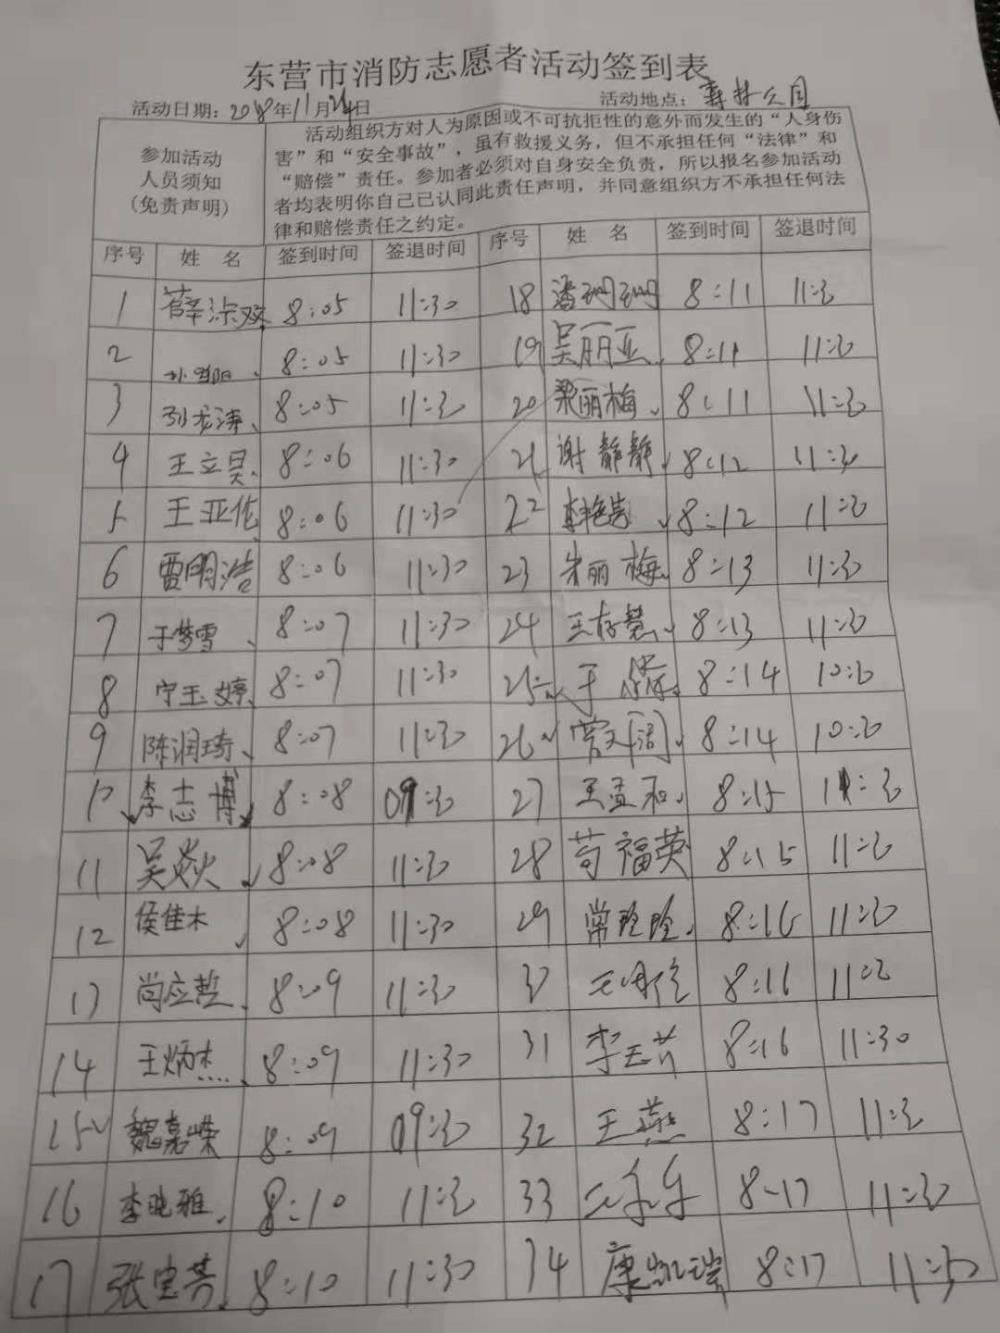 东营市消防志愿者活动签到表
活动日期：2018年11月24日 活动地点：森林公园
参加活动
人员须知
(免责声明)
活动组织方对人为原因或不可抗拒性的意外而发生的“人身伤
害”和“安全事故”，虽有救援义务，但不承担任何“法律”和
“赔偿”责任。参加者必须对自身安全负责，所以报名参加活动
者均表明你自己已认同此责任声明，并同意组织方不承担任何法
律和赔偿责任之约定。
序号 姓 名 签到时间 签退时间 序号 姓 名 签到时间 签退时间
1 薛 8:05 11:30 18 潘珊珊 8:11 11:30
2 8:05 11:30 19 吴丽亚 8:11 11:30
3 孙龙涛 8:05 11:30 20 梁丽梅 8:11 11:30
4 王立昊 8:06 11:30 21 谢静静 8:12 11:30
5 王亚伦 8:06 11:30 22 8:12 11:30
6 雷明浩 8:06 11:30 23 朱丽梅 8:13 11:30
7 于梦雪 8:07 11:30 24 王存慧 8:13 11:30
8 宁玉婷 8:07 11:30 25 于 8:14 10:30
9 陈润琦 8:07 11:30 26 8:14 10:30
10 李志博 8:08 09:30 27 王孟和 8:15 11:30
11 吴焱 8:08 11:30 28 苟福英 8:15 11:30
12 侯佳木 8:08 11:30 29 常玲玲 8:16 11:30
13 尚应哲 8:09 11:30 30 8:16 11:30
14 王炳杰 8:09 11:30 31 李玉芹 8:16 11:30
15 魏嘉嵘 8:09 09:30 32 王燕 8:17 11:30
16 李晓雅 8:10 11:30 33 8:17 11:30
17 张宝芳 8:10 11:30 34 康凯瑞 8:17 11:30